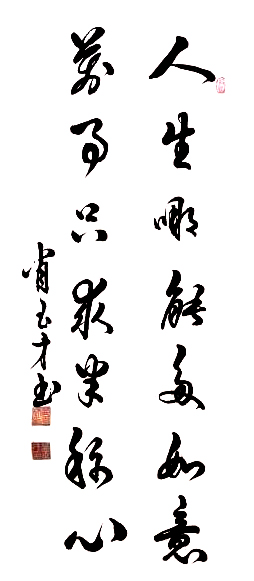 人生哪能多如意
萬事只求半称心
肖玉才书